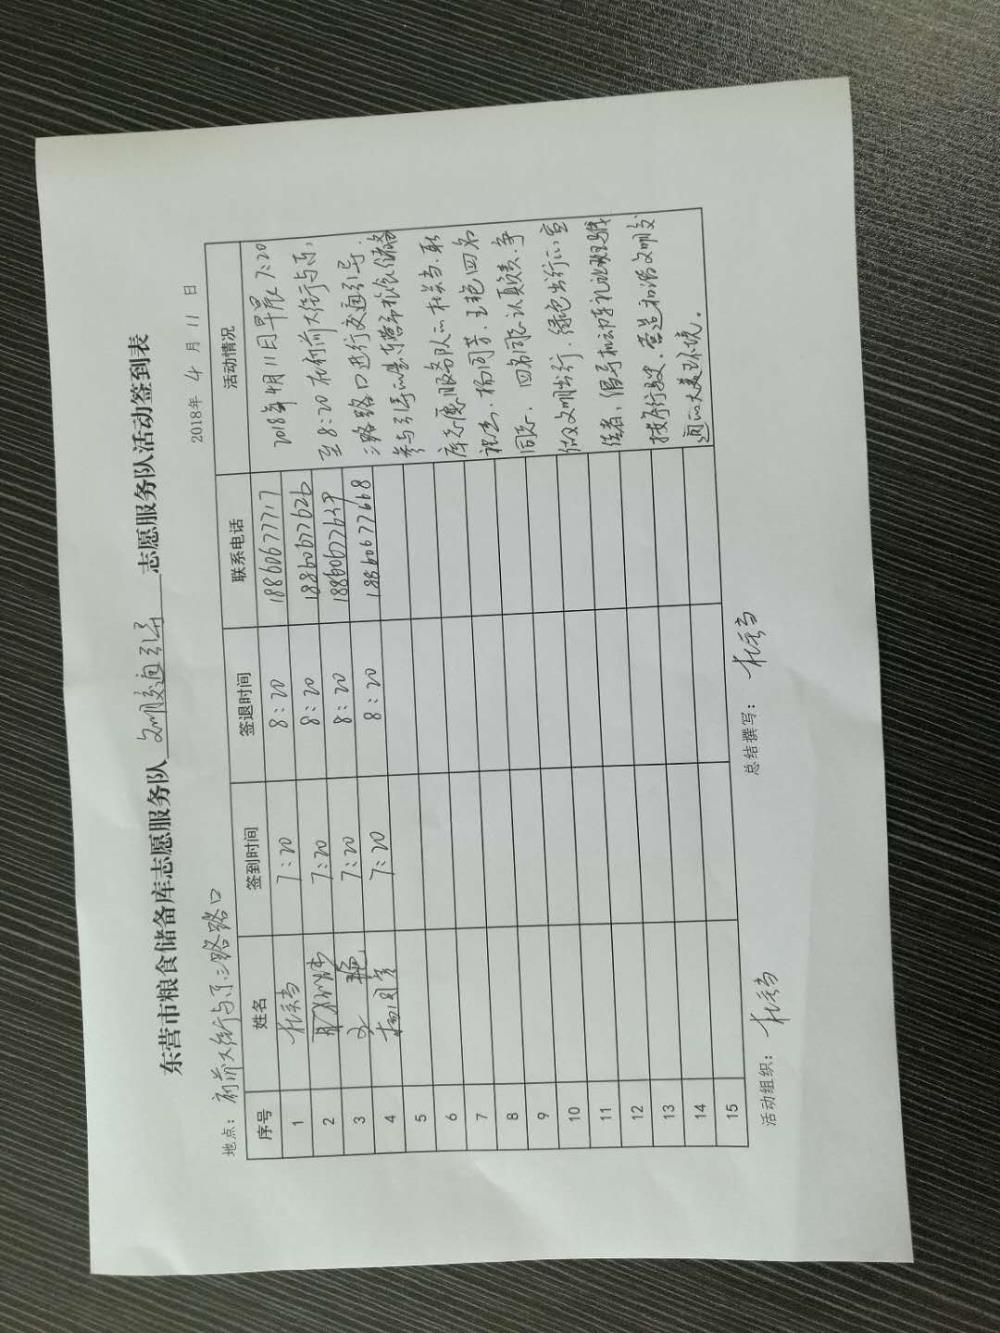 东营市粮食储备库志愿服务队 文明交通引导 志愿服务队活动签到表
地点： 府前大街与东二路路口 2018年 4 月 11 日
序号 姓名 签到时间 签退时间 联系电话 活动情况
1 7:20 8:20 18860677717
2 7:20 8:20 18860677626
3 王艳 7:20 8:20 18860677629
4 杨同芳 7:20 8:20 18860677668
5
6
7
8
9
10
11
12
13
14
15
2018年4月11日早晨7:20
至8:20在府前大街与东
二路路口进行交通引导.
参与引导的是东营市粮食储备
库志愿服务队的
杨同芳.王艳四名
同志. 四名同志认真负责.争
做文明出行.绿色出行的宣
传者,倡导机动车礼让斑马线
按序行驶.营造和谐文明交
通的大美环境。
活动组织： 总结撰写：